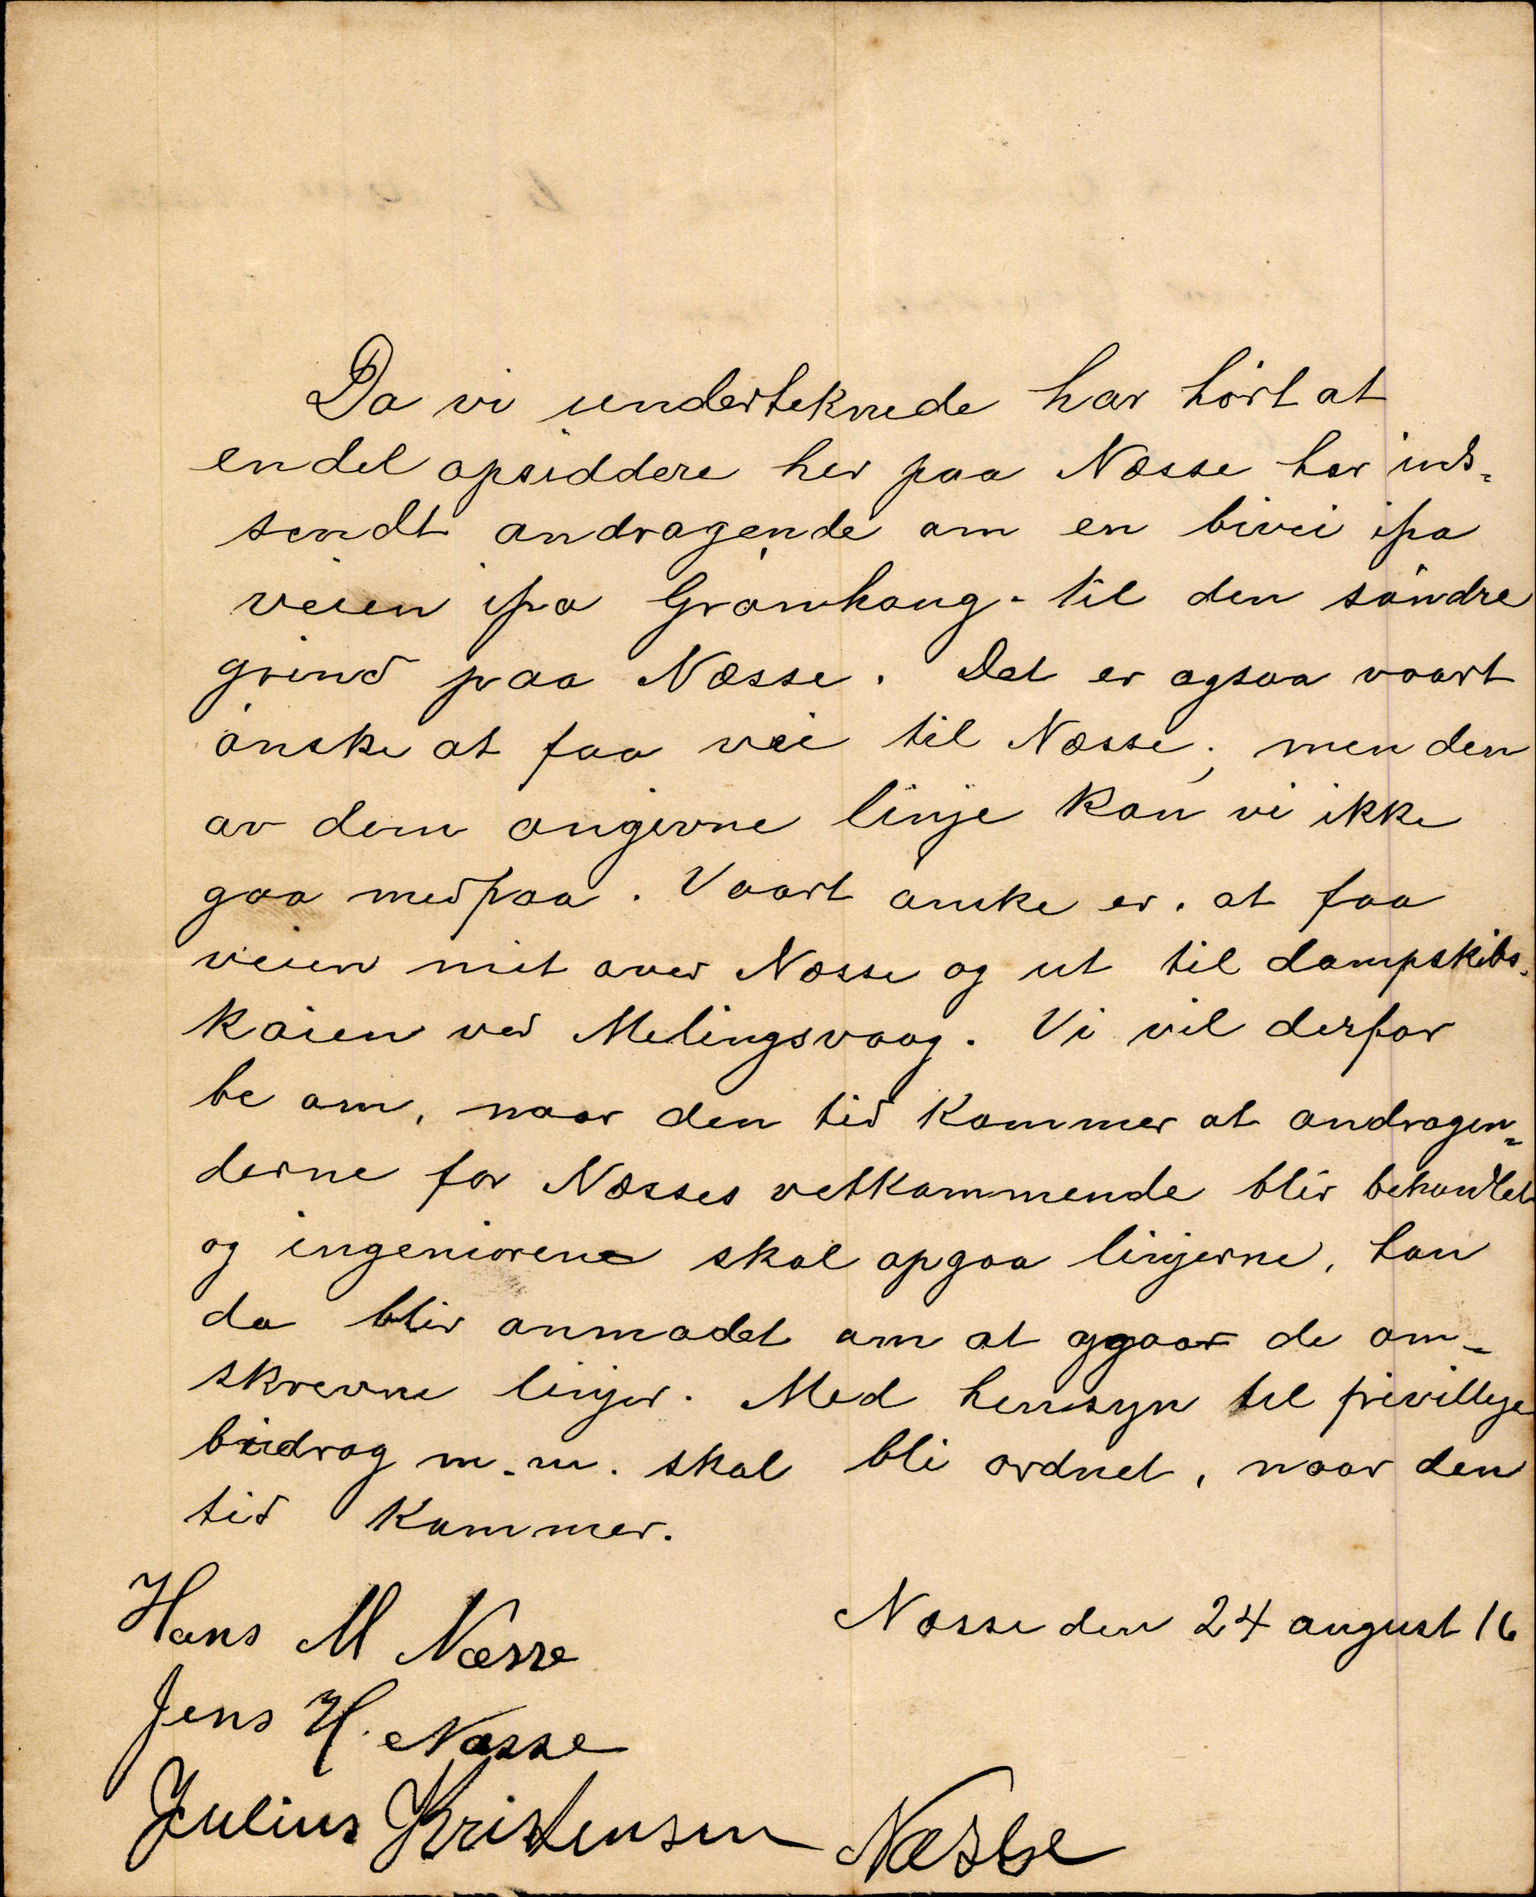 Da vi underteknede har hørt at
endel opsiddere her paa Næsse har ind=
sendt andragende om en bivei ifra
veien ifra Gramhaug - til den søndre
grind paa Næsse. Det er ogsaa vaart
ønske at faa vei til Næsse; men den
av dem angivne linje kan vi ikke
gaa med paa. Vaart ønske er, at faa
veien mit over Næsse og ut til dampskibs-
kaien ved Melingsvaag. Vi vil derfor
be om, naar den tid kommer at andragen=
derne for Næsses vetkommende blir behandlet
og ingeniøren skal opgaa linjerne, han
da blir anmodet om at opgaa de om-
skrevne linjer. Med hensyn til frivillige
bidrag m.m. skal bli ordnet, naar den
tid kommer.
Næsse den 24 august 16
Hans M Næsse
Jens H. Næsse
Julius Kristensen Næsse